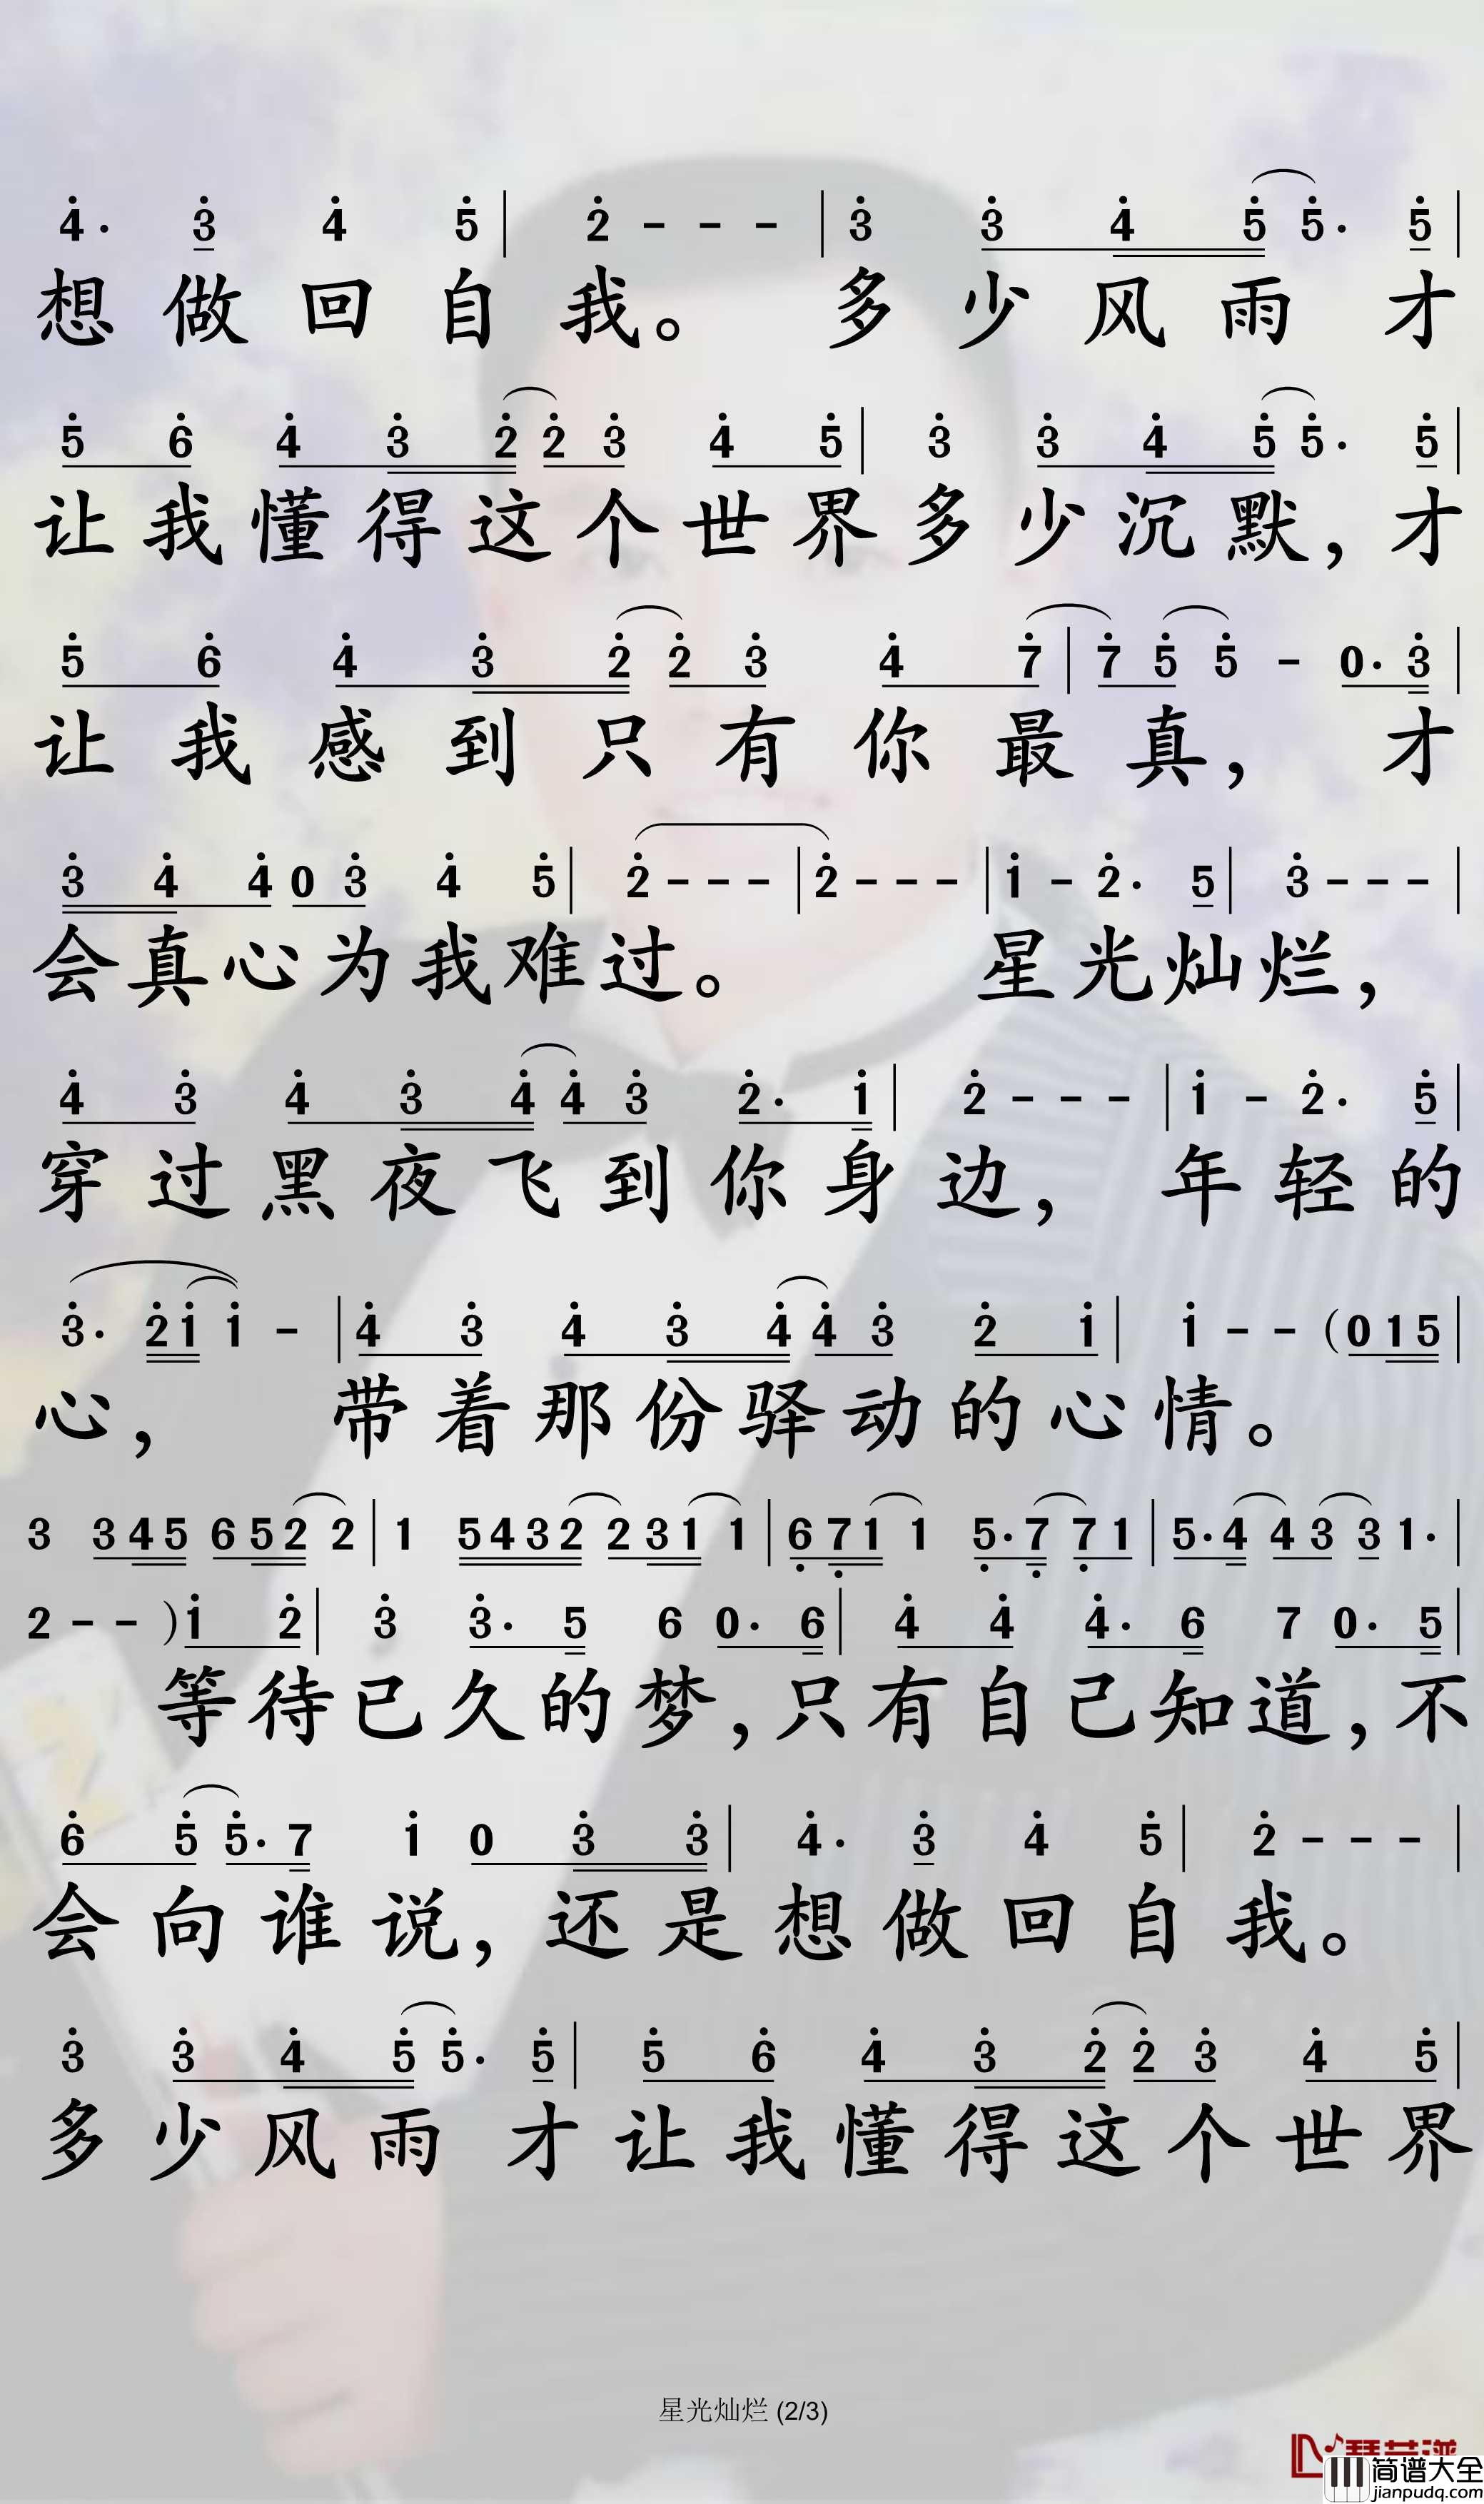 4· 3 4 5 | 2 - - - | 3 3 4 5 5· 5 |
想做回自我。 多少风雨 才
5 6 4 3 2 2 3 4 5 | 3 3 4 5 5· 5 |
让我懂得这个世界多少沉默，才
5 6 4 3 2 2 3 4 7 | 7 5 5 - 0· 3 |
让我感到只有你最真， 才
3 4 4 0 3 4 5 | 2 - - - | 2 - - - | 1 - 2· 5 | 3 - - - |
会真心为我难过。 星光灿烂，
4 3 4 3 4 4 3 2· 1 | 2 - - - | 1 - 2· 5 |
穿过黑夜飞到你身边， 年轻的
3· 2 1 1 - | 4 3 4 3 4 4 3 2 1 | 1 - - (0 1 5 |
心， 带着那份驿动的心情。
3 3 4 5 6 5 2 2 | 1 5 4 3 2 2 3 1 1 | 6 7 1 1 5· 7 7 1 | 5· 4 4 3 3 1· |
2 - - ) 1 2 | 3 3· 5 6 0· 6 | 4 4 4· 6 7 0· 5 |
等待已久的梦，只有自己知道，不
6 5 5· 7 1 0 3 3 | 4· 3 4 5 | 2 - - - |
会向谁说，还是想做回自我。
3 3 4 5 5· 5 | 5 6 4 3 2 2 3 4 5 |
多少风雨 才让我懂得这个世界
星光灿烂 (2/3)
简谱大全
jianpudq.com